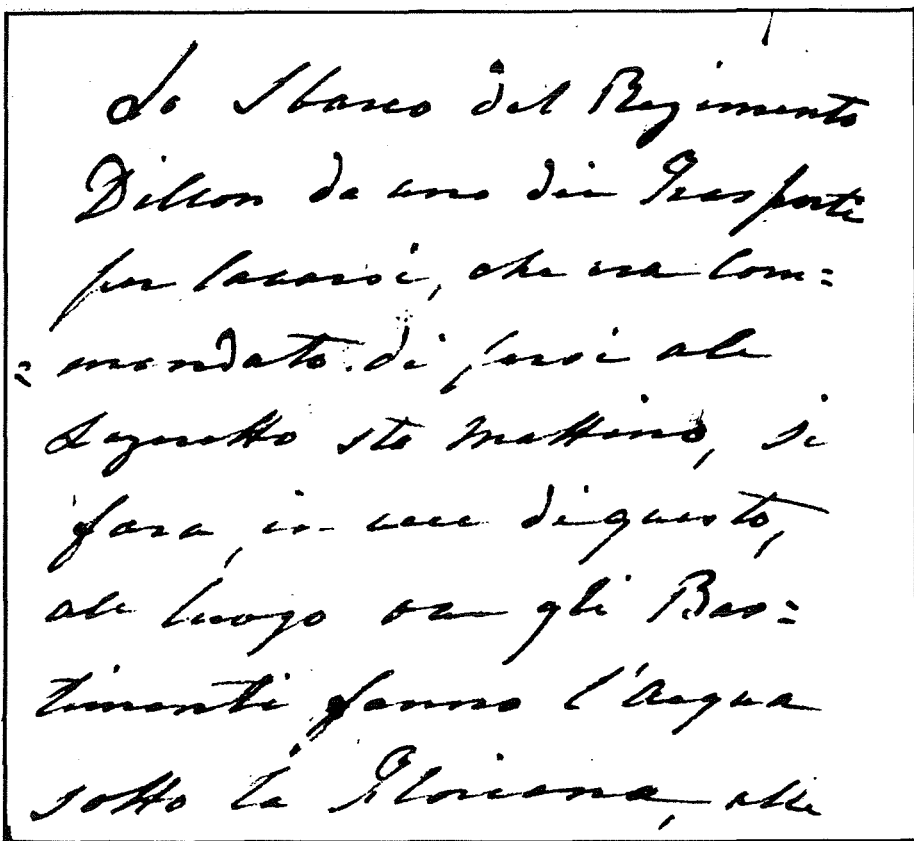 Lo Sbarco del Regimento
Dillon da uno dei Trasporti
per lavarsi, che era Com=
=mandato di farsi al
Lazaretto sta Mattina, si
fara, in vece di questo,
al luogo ove gli Bas=
timenti fanno l'Acqua
sotto la Floriana, alle